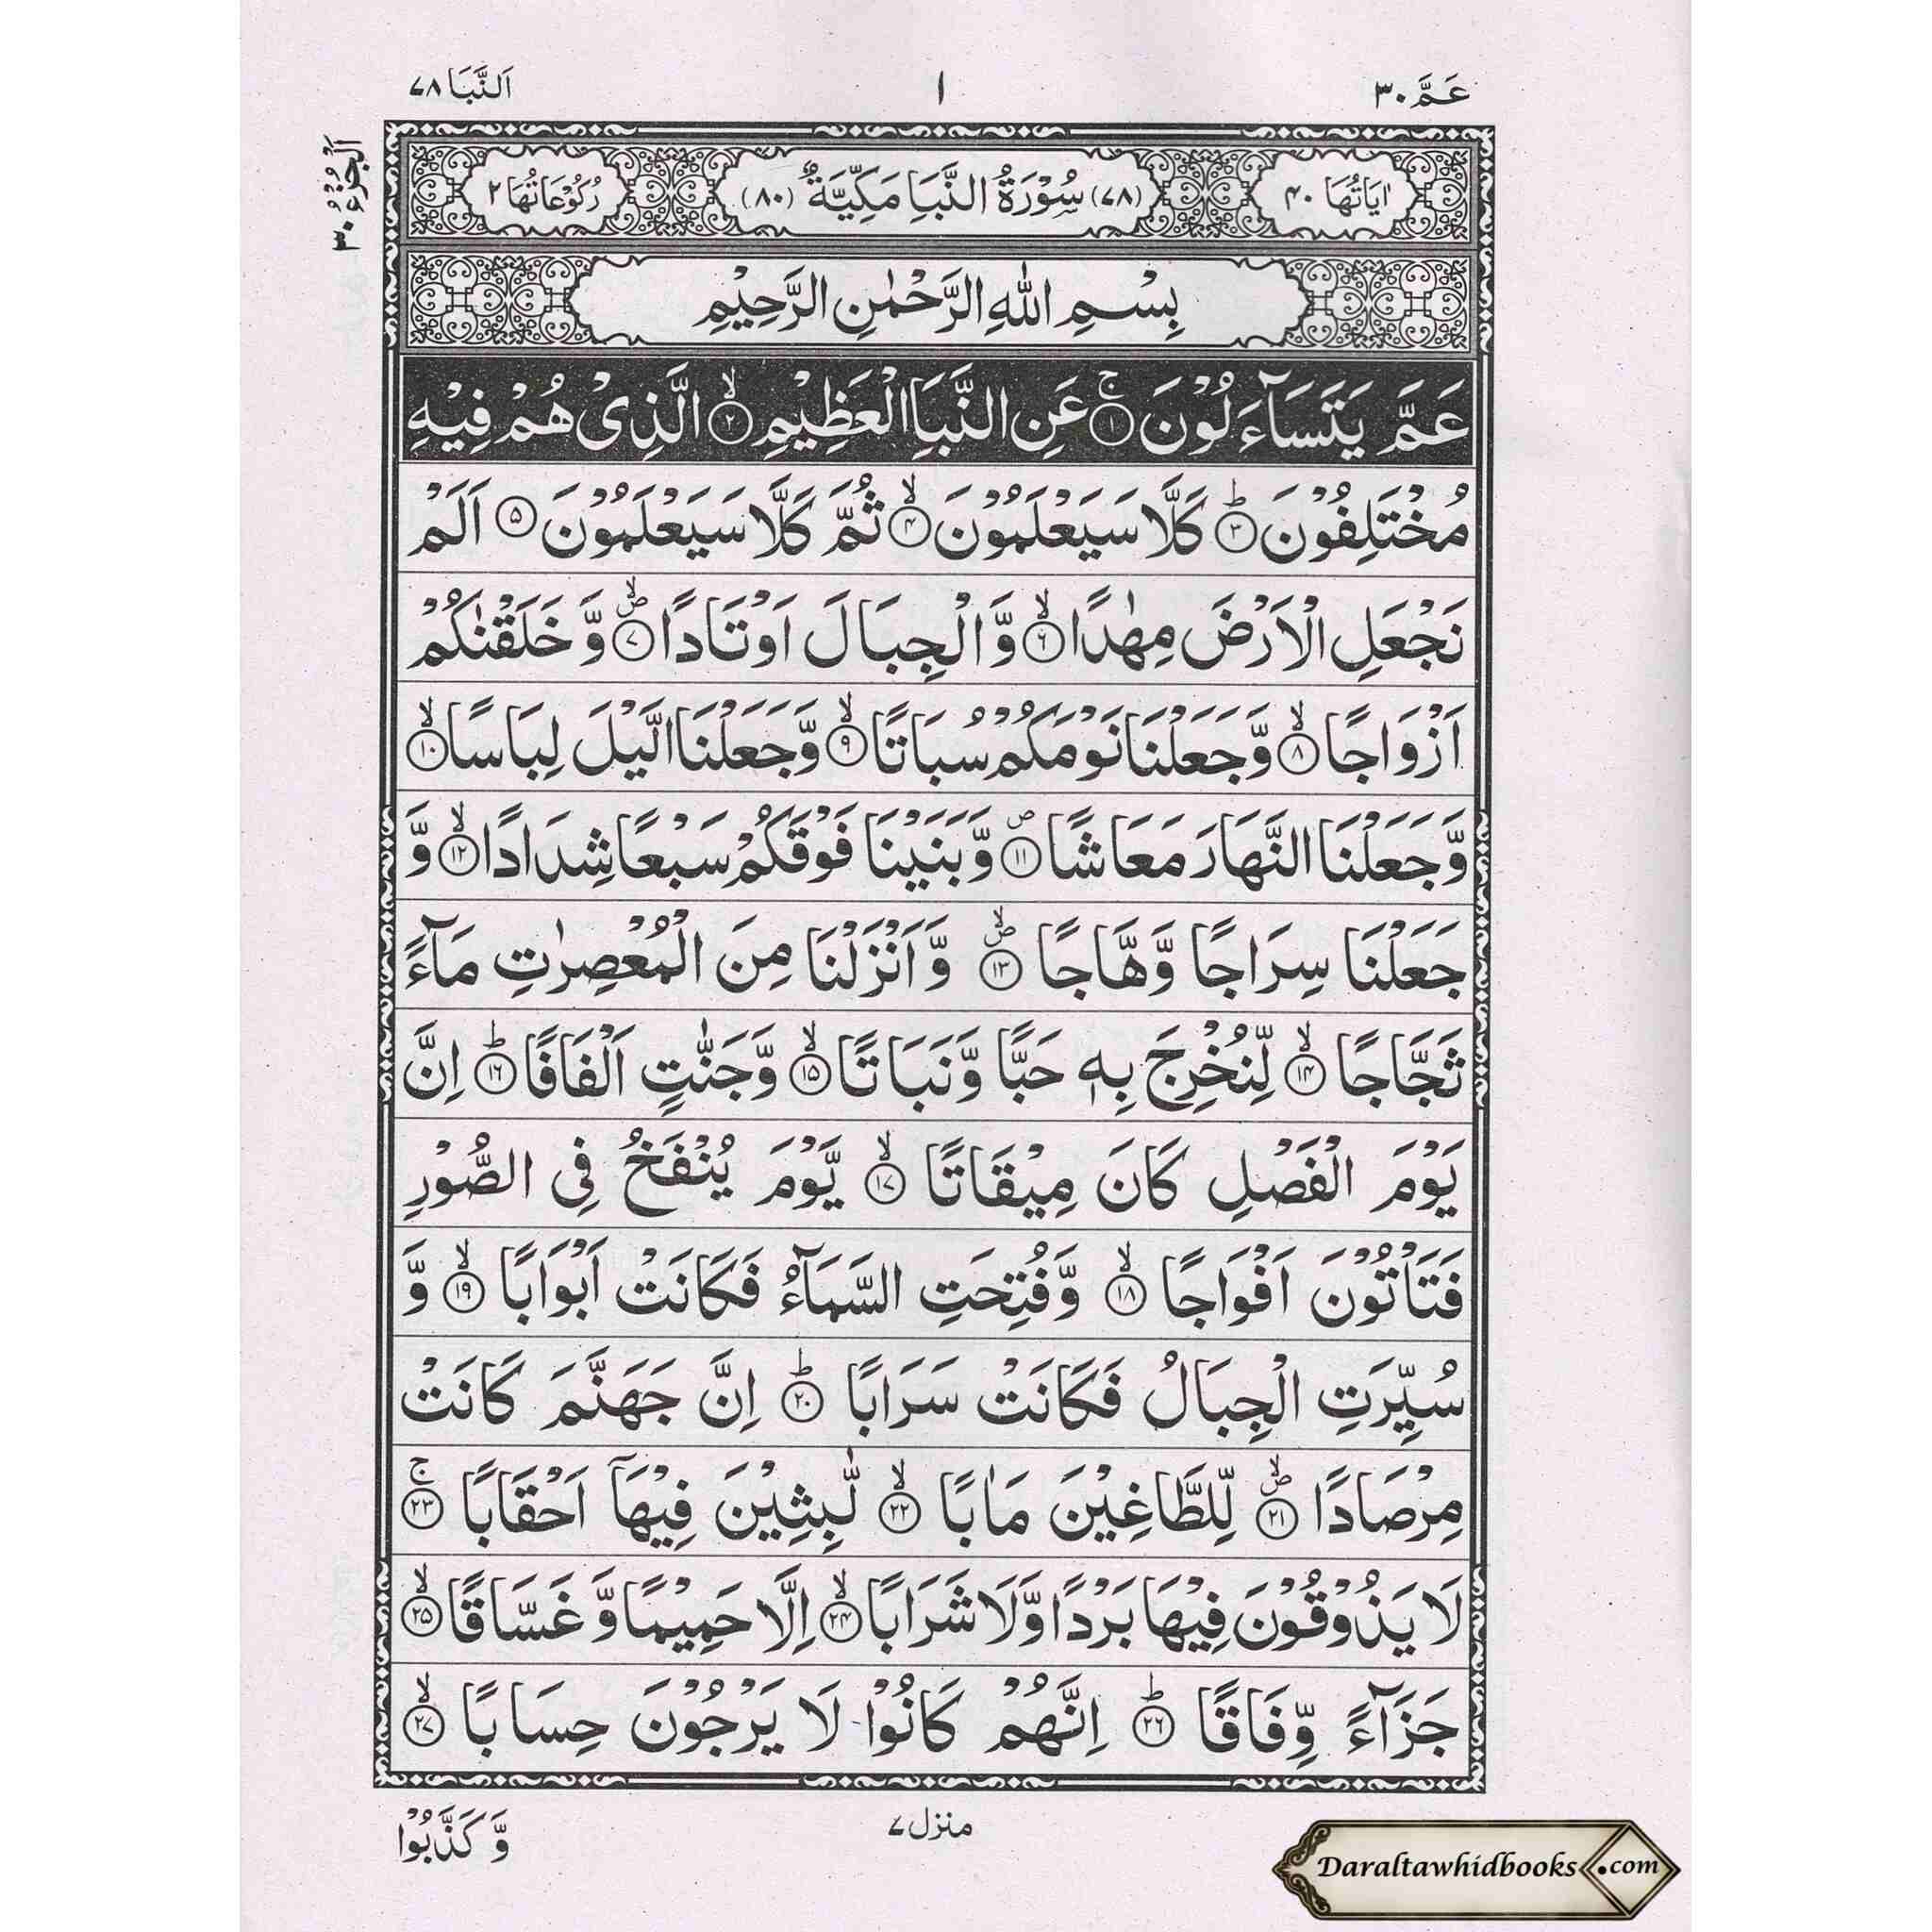 عَمَّ ٣٠
١
اَلنَّبَا ٧٨
اَلْجُزْءُ ٣٠
اٰيَاتُهَا ٤٠
(٧٨) سُوْرَةُ النَّبَاِ مَكِّيَّةٌ (٨٠)
رُكُوْعَاتُهَا ٢
بِسْمِ اللّٰهِ الرَّحْمٰنِ الرَّحِيْمِ
عَمَّ يَتَسَآءَلُوْنَ ۚ ١ عَنِ النَّبَاِ الْعَظِيْمِ ۙ ٢ الَّذِىْ هُمْ فِيْهِ
مُخْتَلِفُوْنَ ؕ ٣ كَلَّا سَيَعْلَمُوْنَ ۙ ٤ ثُمَّ كَلَّا سَيَعْلَمُوْنَ ٥ اَلَمْ
نَجْعَلِ الْاَرْضَ مِهٰدًا ۙ ٦ وَّالْجِبَالَ اَوْتَادًا ۙ ص ٧ وَّخَلَقْنٰكُمْ
اَزْوَاجًا ۙ ٨ وَّجَعَلْنَا نَوْمَكُمْ سُبَاتًا ۙ ٩ وَّجَعَلْنَا الَّيْلَ لِبَاسًا ۙ ١٠
وَّجَعَلْنَا النَّهَارَ مَعَاشًا ص ١١ وَّبَنَيْنَا فَوْقَكُمْ سَبْعًا شِدَادًا ۙ ١٢ وَّ
جَعَلْنَا سِرَاجًا وَّهَّاجًا ۙ ص ١٣ وَّاَنْزَلْنَا مِنَ الْمُعْصِرٰتِ مَآءً
ثَجَّاجًا ۙ ١٤ لِّنُخْرِجَ بِهٖ حَبًّا وَّنَبَاتًا ۙ ١٥ وَّجَنّٰتٍ اَلْفَافًا ؕ ١٦ اِنَّ
يَوْمَ الْفَصْلِ كَانَ مِيْقَاتًا ۙ ١٧ يَّوْمَ يُنْفَخُ فِى الصُّوْرِ
فَتَاْتُوْنَ اَفْوَاجًا ۙ ١٨ وَّفُتِحَتِ السَّمَآءُ فَكَانَتْ اَبْوَابًا ۙ ١٩ وَّ
سُيِّرَتِ الْجِبَالُ فَكَانَتْ سَرَابًا ؕ ٢٠ اِنَّ جَهَنَّمَ كَانَتْ
مِرْصَادًا ۙ ص ٢١ لِّلطَّاغِيْنَ مَاٰبًا ۙ ٢٢ لّٰبِثِيْنَ فِيْهَآ اَحْقَابًا ۚ ٢٣
لَا يَذُوْقُوْنَ فِيْهَا بَرْدًا وَّلَا شَرَابًا ۙ ٢٤ اِلَّا حَمِيْمًا وَّغَسَّاقًا ۙ ٢٥
جَزَآءً وِّفَاقًا ؕ ٢٦ اِنَّهُمْ كَانُوْا لَا يَرْجُوْنَ حِسَابًا ۙ ٢٧
منزل ٧
وَّكَذَّبُوْا
Daraltawhidbooks.com